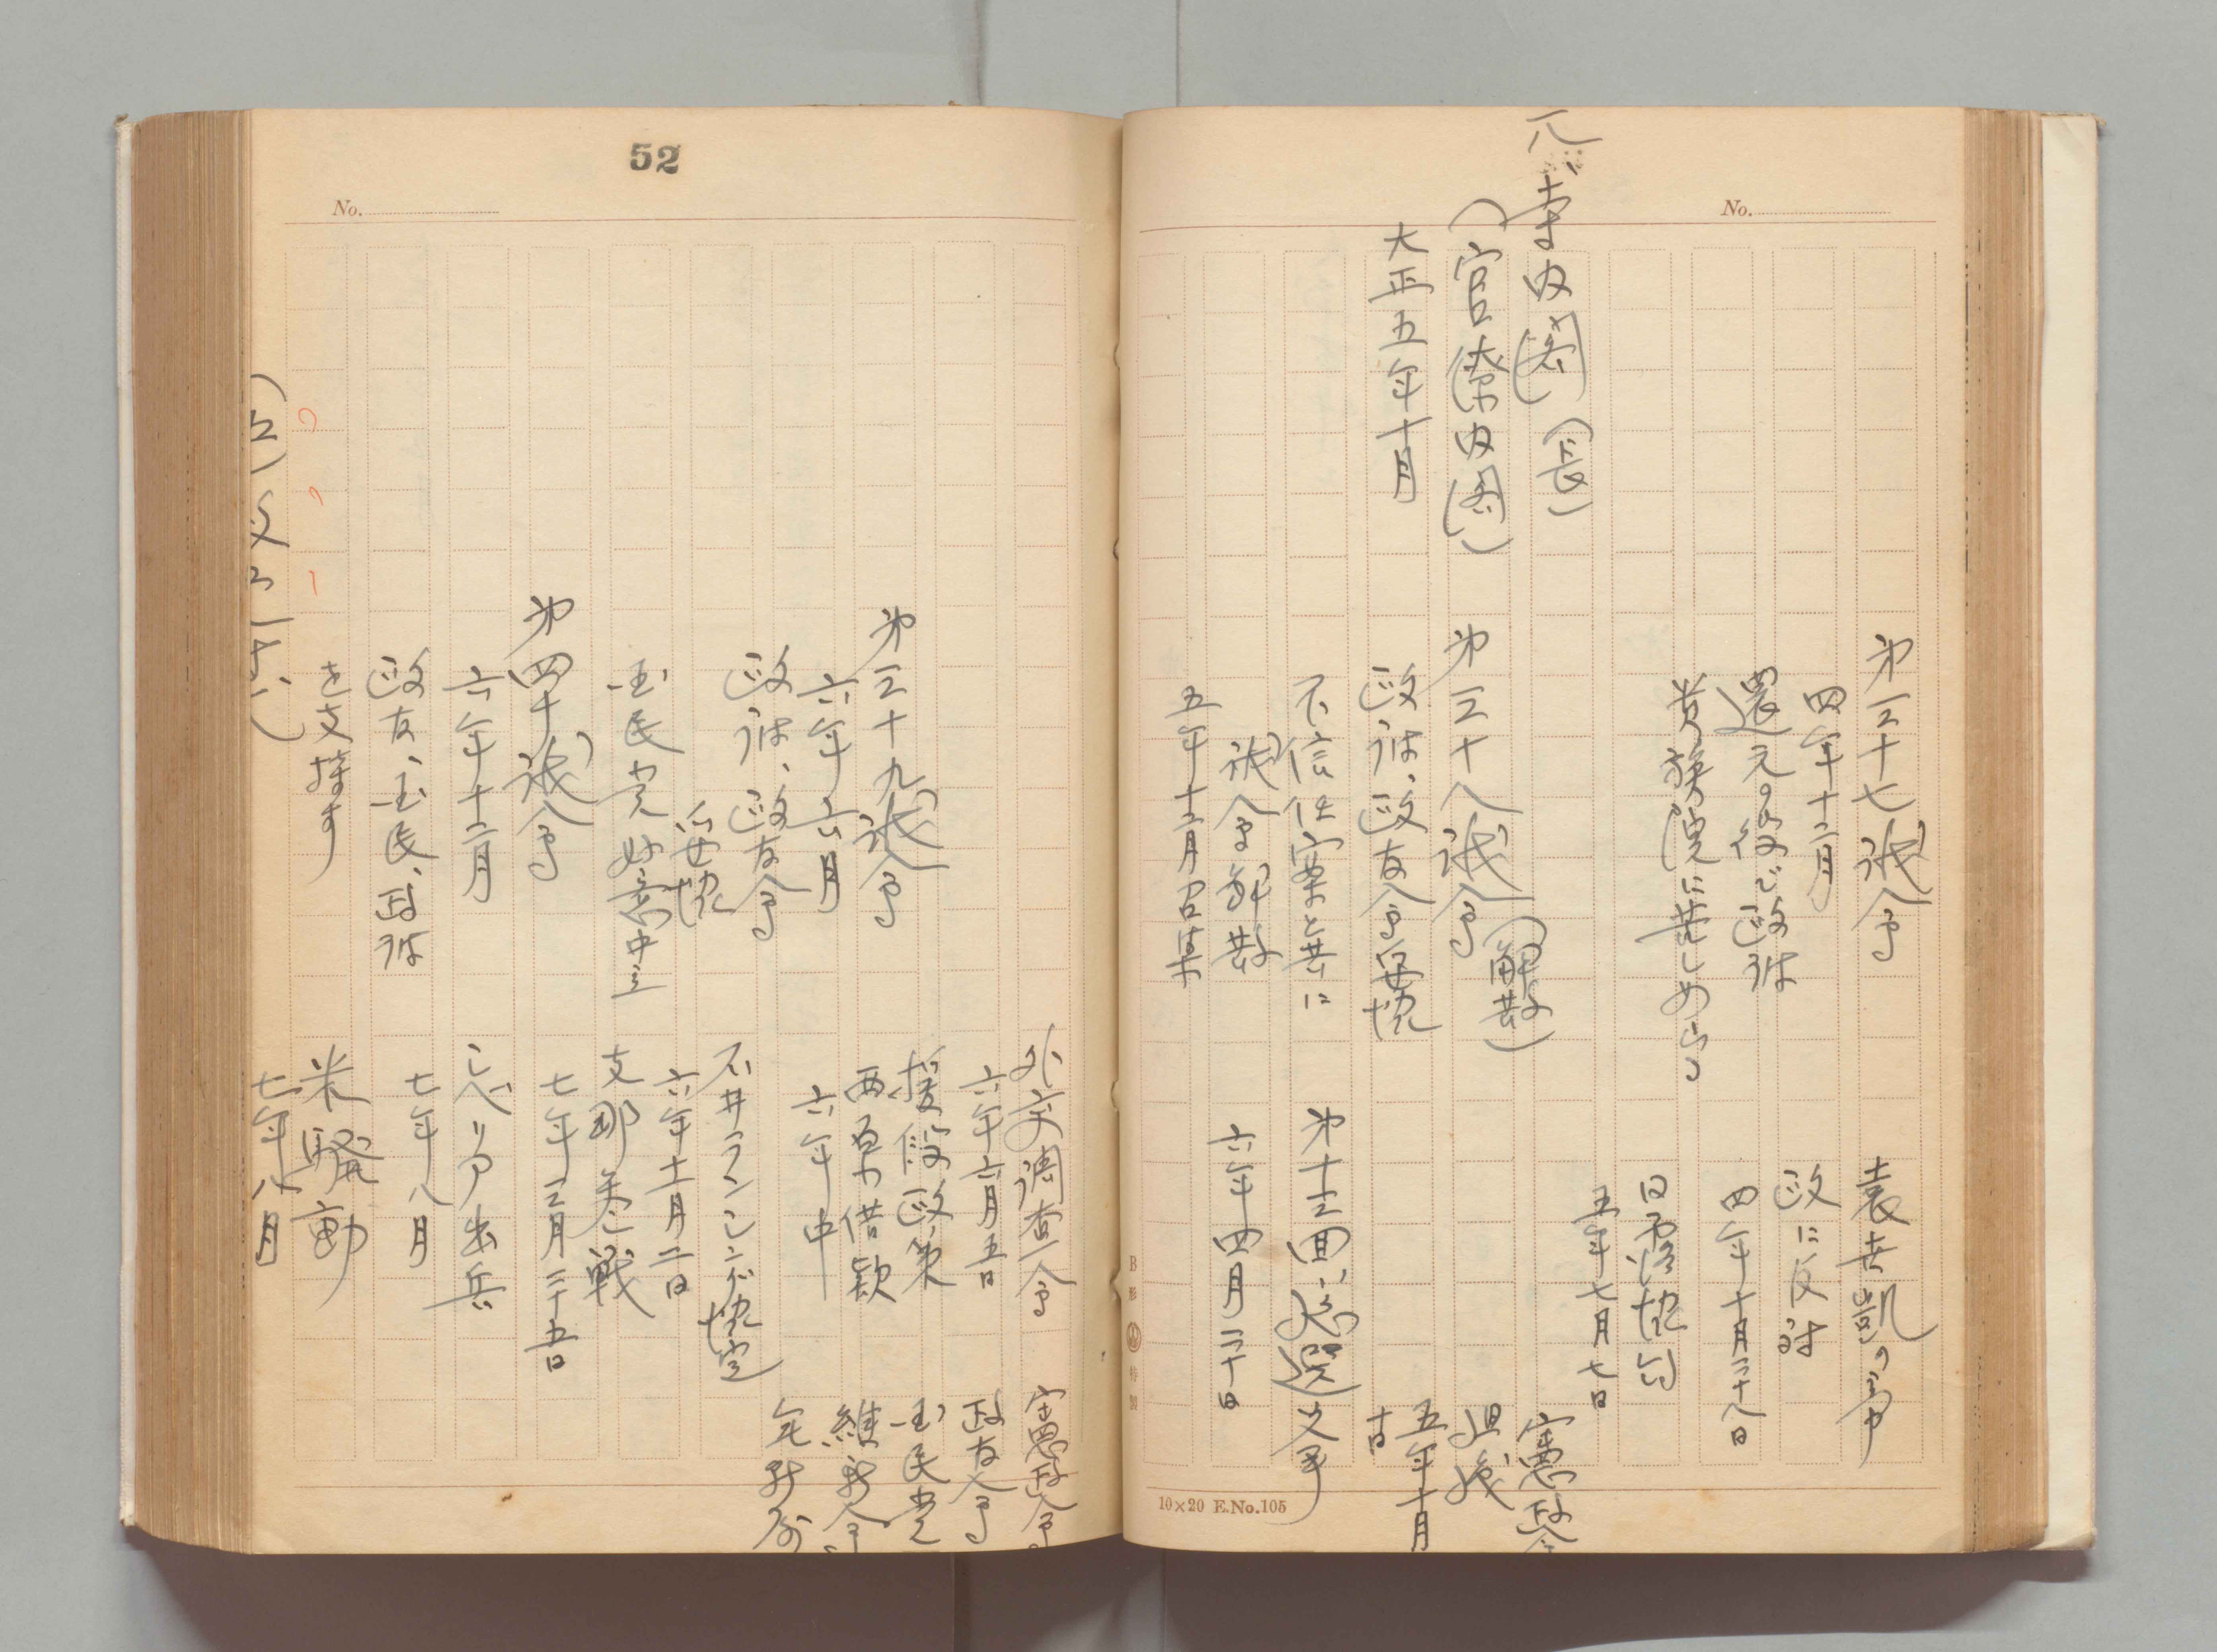 No.
第三十七議会
四年十二月
還元の役で政府
貴族院に苦しめらる
袁世凱の帝
政に反対
四年十月二十八日
日露協約
五年七月七日
八、寺内閣(長)
(官僚内閣)
大正五年十月
第三十八議会
(解散)
政府、政友会妥協
不信任案と共に
議会解散
五年十二月召集
憲政会
組織
五年十月
十日
第十三回総選挙
六年四月二十日
B形 特製
10×20 E.No.105
52
No.
第三十九議会
六年六月
政府、政友会
妥協
国民党好意中立
第四十議会
六年十二月
政友、国民、政府
を支持す
外交調査会
六年六月五日
援段政策
西原借款
六年中
石井ランシング協定
六年十一月二日
支那参戦
七年三月二十五日
シベリア出兵
七年八月
米騒動
七年八月
憲政会
政友会
国民党
維新会
無所属